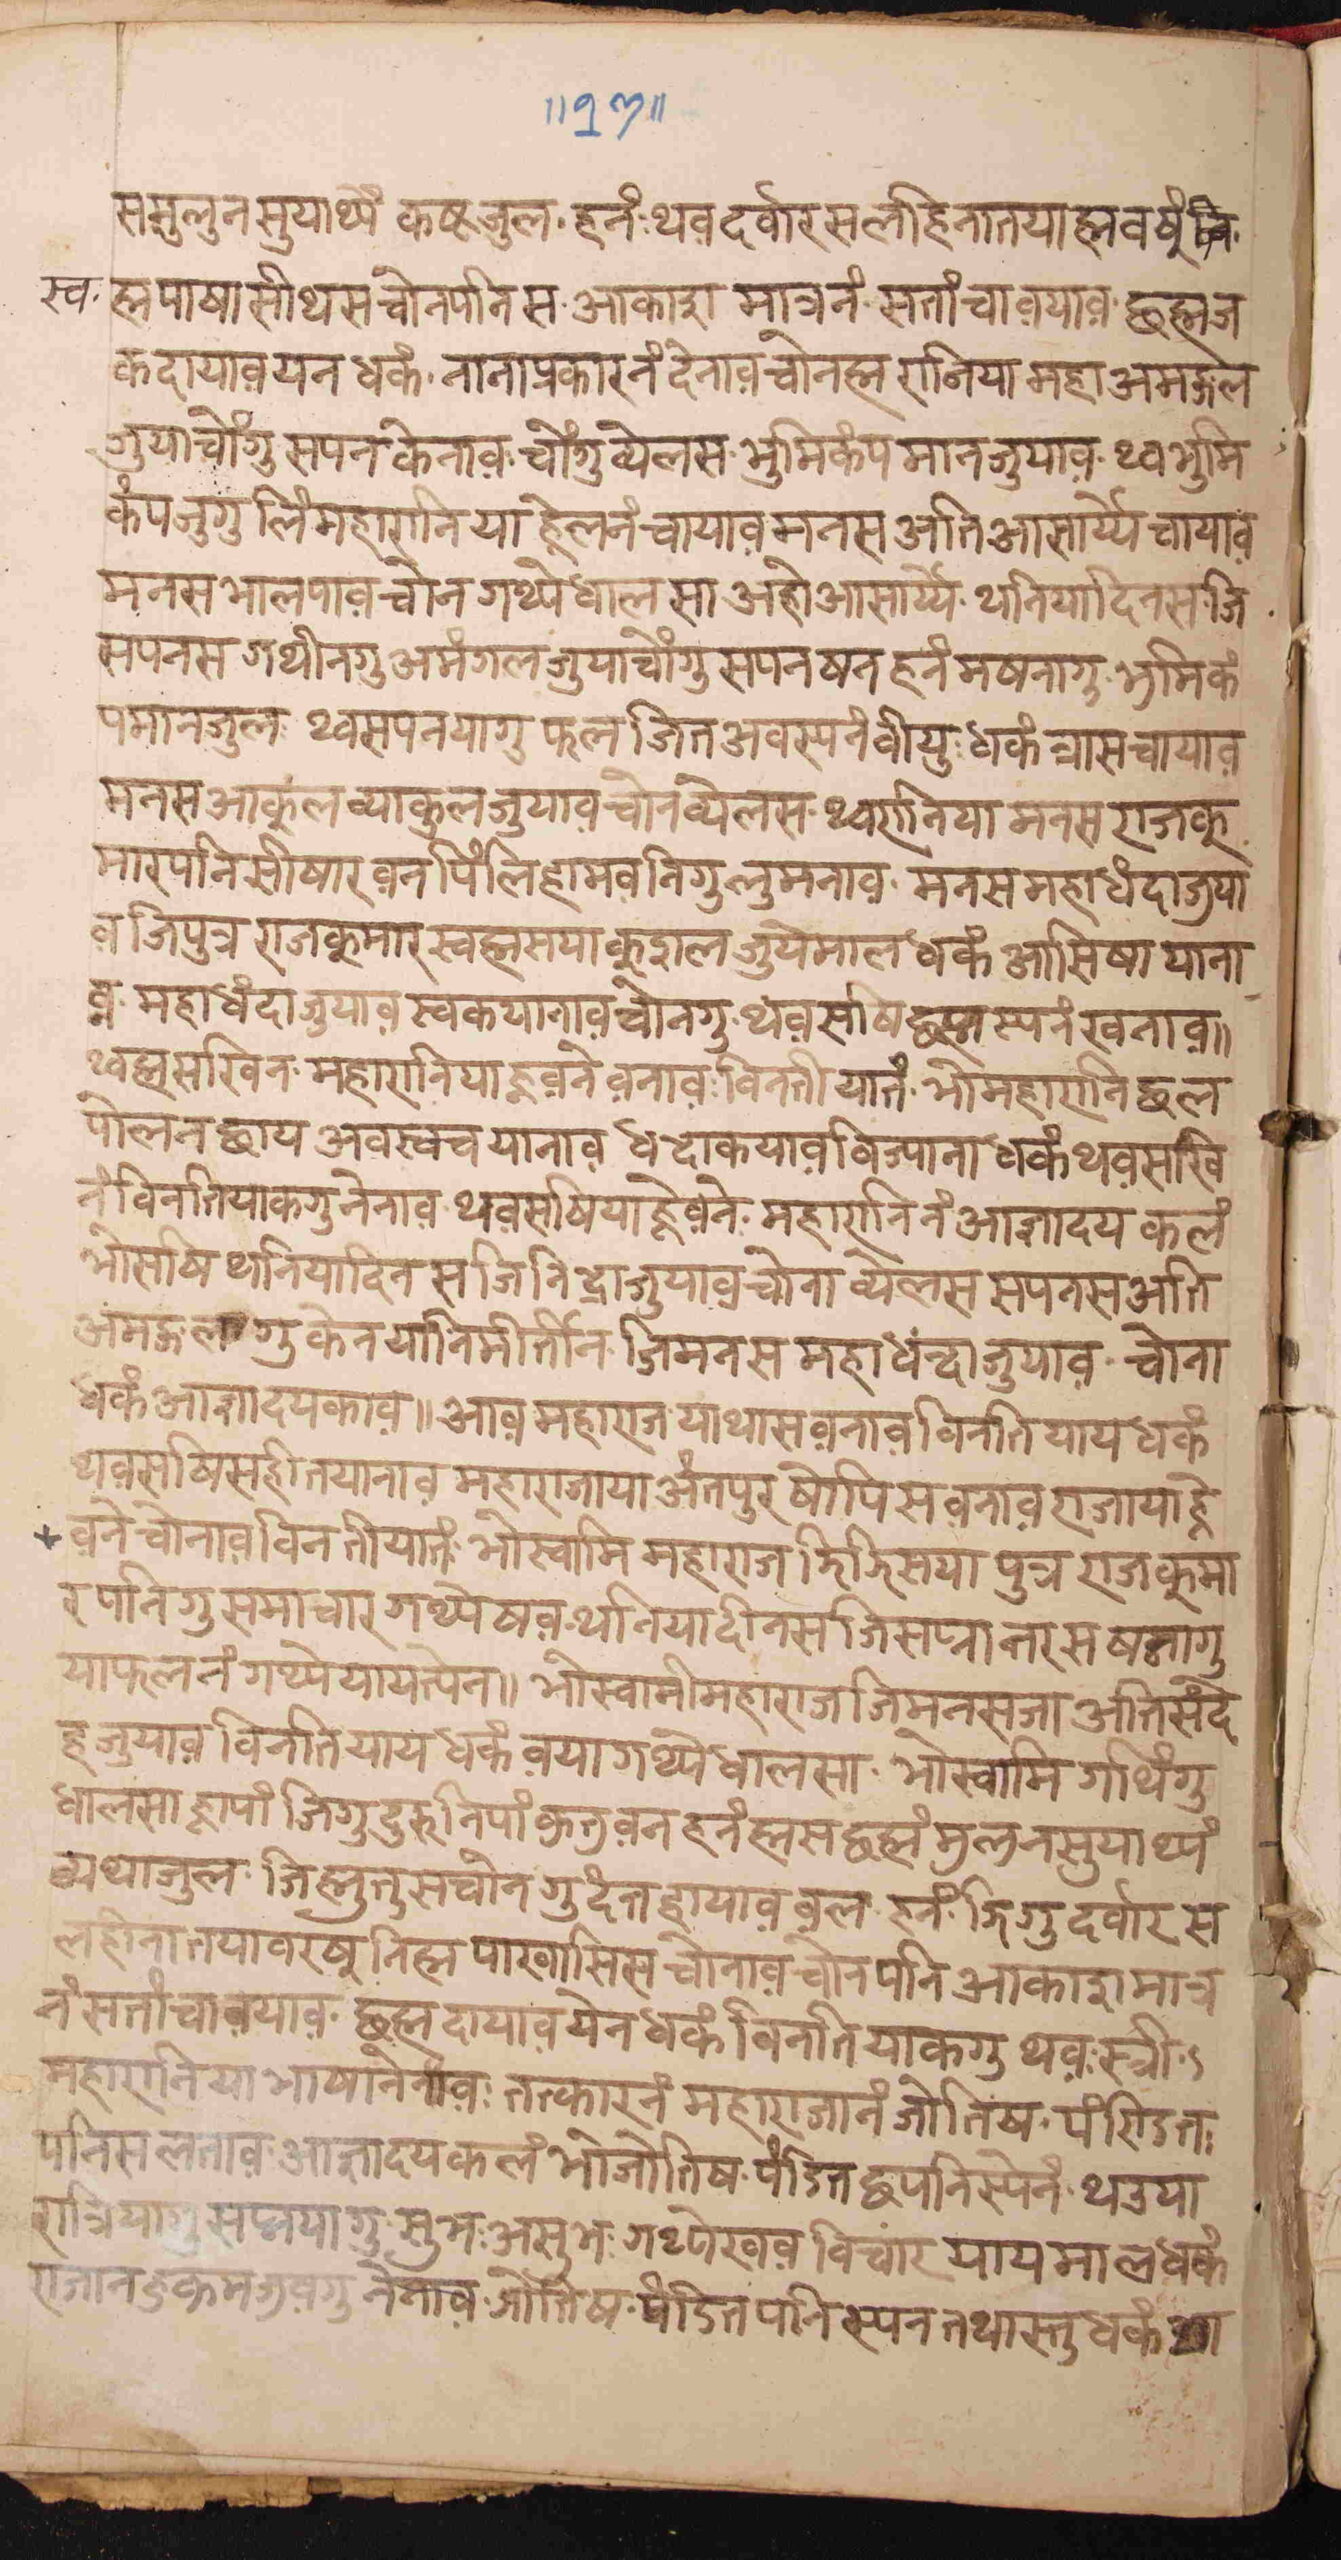 ॥१७॥
समुलुन सुयाथ्यें कष्ट जुल. हनं. थव दर्वारस लहिनातयाह्म वषुं
स्व. ह्म पाषासीथस चोनपनिस आकाश मात्रनं सतां चा वयाव छह्म ज
क दायाव यन धकं. नानाप्रकारनं देनाव चोनह्म रानिया महा अमङ्गल
जुयाचोंगु सपन केनाव चोंगु व्येलस भुमिकंपमान जुयाव थ्व भुमि
कंप जुगुलिं महारानिया ह्नेलनं चायाव मनस अति आसार्य्ये चायाव
मनस भालपाव चोन गथ्ये धालसा अहो आसार्य्ये थनिया दिनस जि
सपनस गथीनगु अमंगल जुयाचोंगु सपन षन हनं मषनागु भुमिकं
पमान जुल थ्व सपनयागु फल जित अवस्यनं वीयु धकं त्रास चायाव
मनस आकुल व्याकुल जुयाव चोन व्येलस थ्व रानिया मनस राजकु
मारपनि सीषार वनपिं लिहामवनिगु लुमनाव मनस महाधंदा जुया
व जिपुत्र राजकुमार स्वह्मसया कुशल जुयेमाल धकं आसिषा याना
व महाधंदा जुयाव स्वकयानाव चोनगु थव सषि छह्मस्यनं खनाव॥
थ्वह्म सखिन महारानिया ह्नवने वनाव विनती यातं भो महारानि छल
पोलन छाय अवस्वच यानाव धदाकयाव बिज्याना धकं थव सखि
नं विनतियाकगु नेनाव थव सषिया ह्नेवने महारानिनं आज्ञादयकलं
भो सषि थनिया दिनस जि निद्रा जुयाव चोना व्येलस सपनस अति
अमङ्गलगु केनया निमीर्तीन जिमनस महाधंन्दा जुयाव चोना
धकं आज्ञादयकाव॥ आव महाराजयाथास वनाव विनति याय धकं
थव सषि सहीतयानाव महाराजाया अंतपुर षोपिस वनाव राजाया ह्ने
वने चोनाव विनतीयातं भो स्वामि महाराज झिझिसया पुत्र राजकुमा
रपनिगु समाचार गथ्ये षव थनिया दीनस जि सप्नान्तरस षनागु
या फलनं गथ्ये याय त्येन॥ भो स्वामी महाराज जिमनस जा अति संदे
ह जुयाव विनति याय धकं वया गथ्ये धालसा भो स्वामि गथिंगु
धालसा ह्नापां जिगु दुरुनिपां कुतु वन हनं ह्मस छह्मं मुलन सुया थ्यं
व्यथा जुल जिह्मुतुस चोनगु दंत हायाव वल हनं जिगु दर्वारस
लहीनातया वरषुनिह्म पाखासिस चोनाव चोनपनि आकाश मात्र
नं सतां चा वयाव छह्म दायाव येन धकं विनति याकगु थव स्त्री
महारानिया भाषा नेनाव तत्कारनं महाराजानं जोतिष पंण्डित
पनि सलताव आज्ञादयकलं भो जोतिष पंडित छपनिस्येनं थउया
रात्रियागु सप्नयागु सुभ असुभ गथ्ये खव विचार यायमाल धकं
राजान हुकुम जुवगु नेनाव जोतिष पंडितपनिस्यन तथास्तु धकं